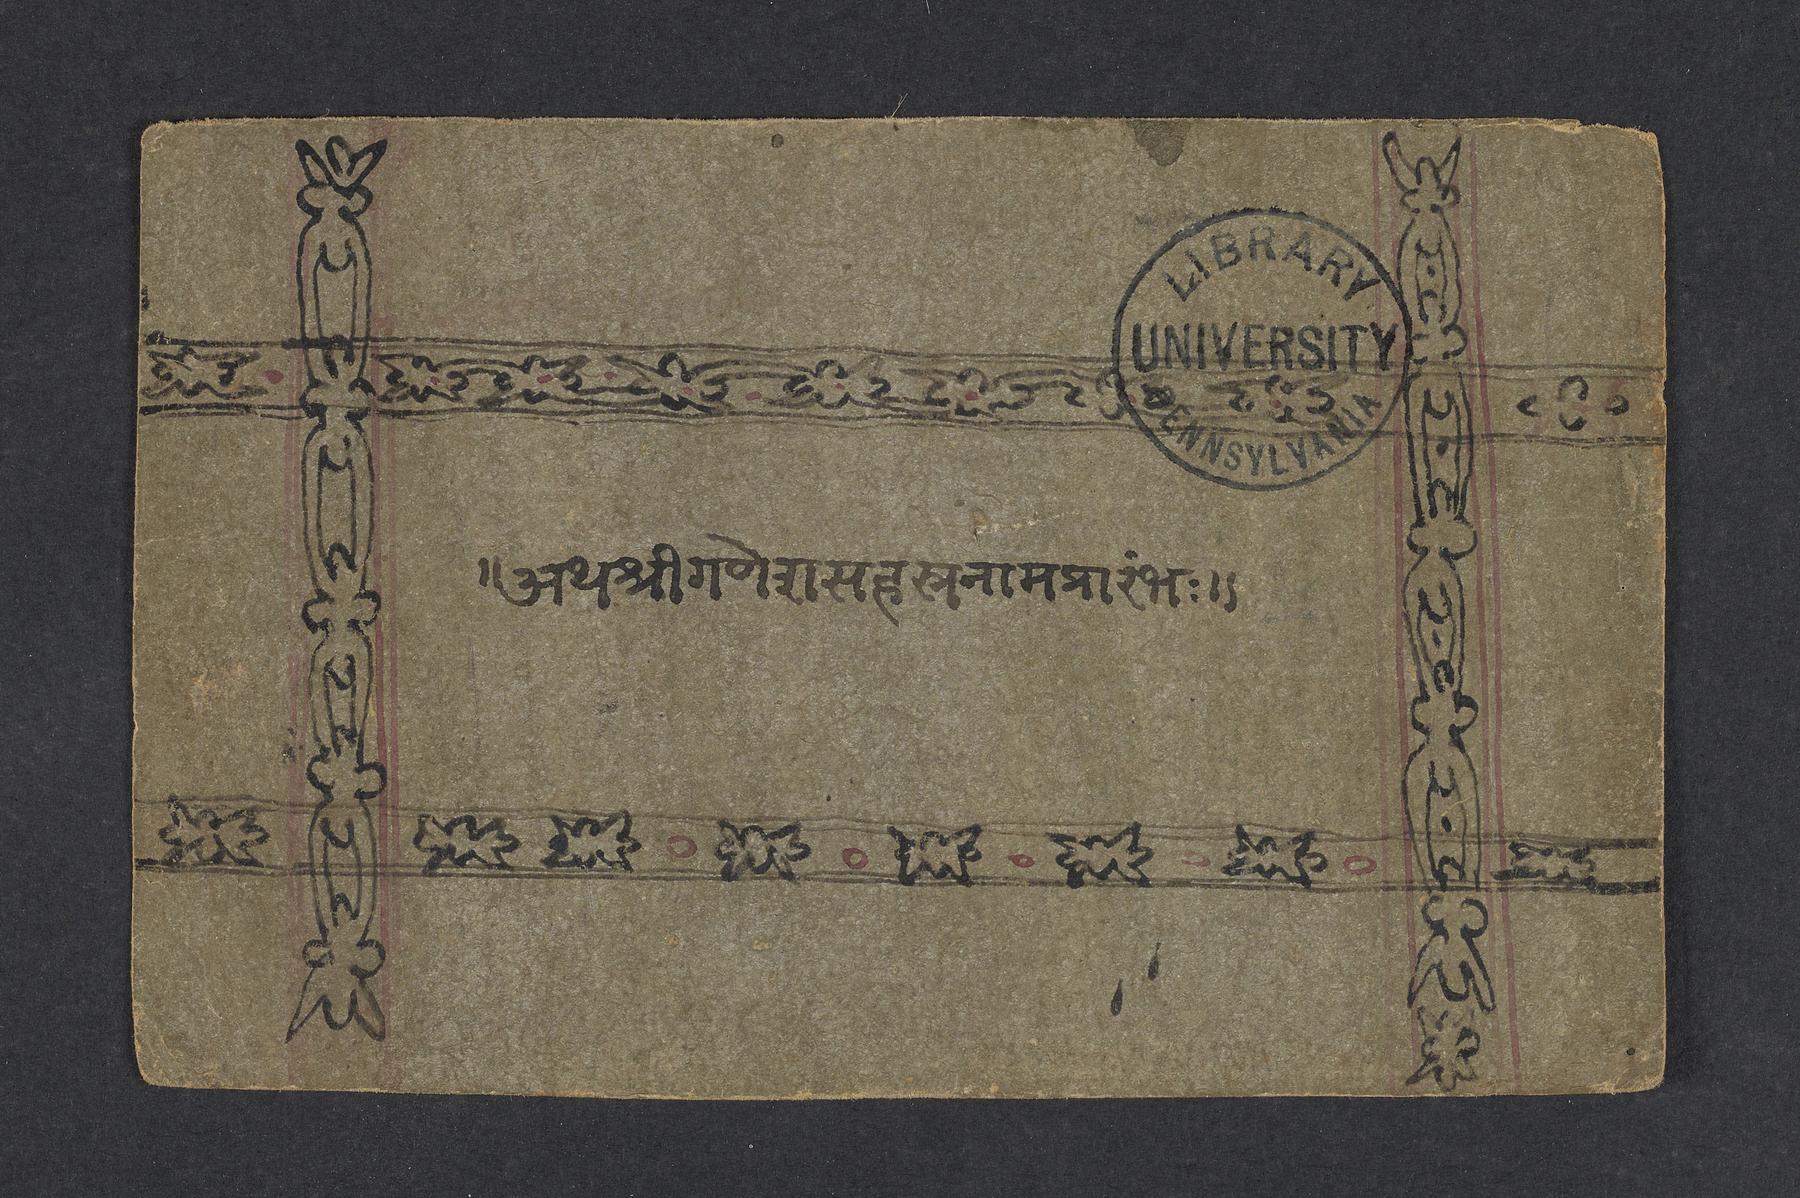 LIBRARY
UNIVERSITY
PENNSYLVANIA
॥अथश्रीगणेशसहस्रनामप्रारंभः॥